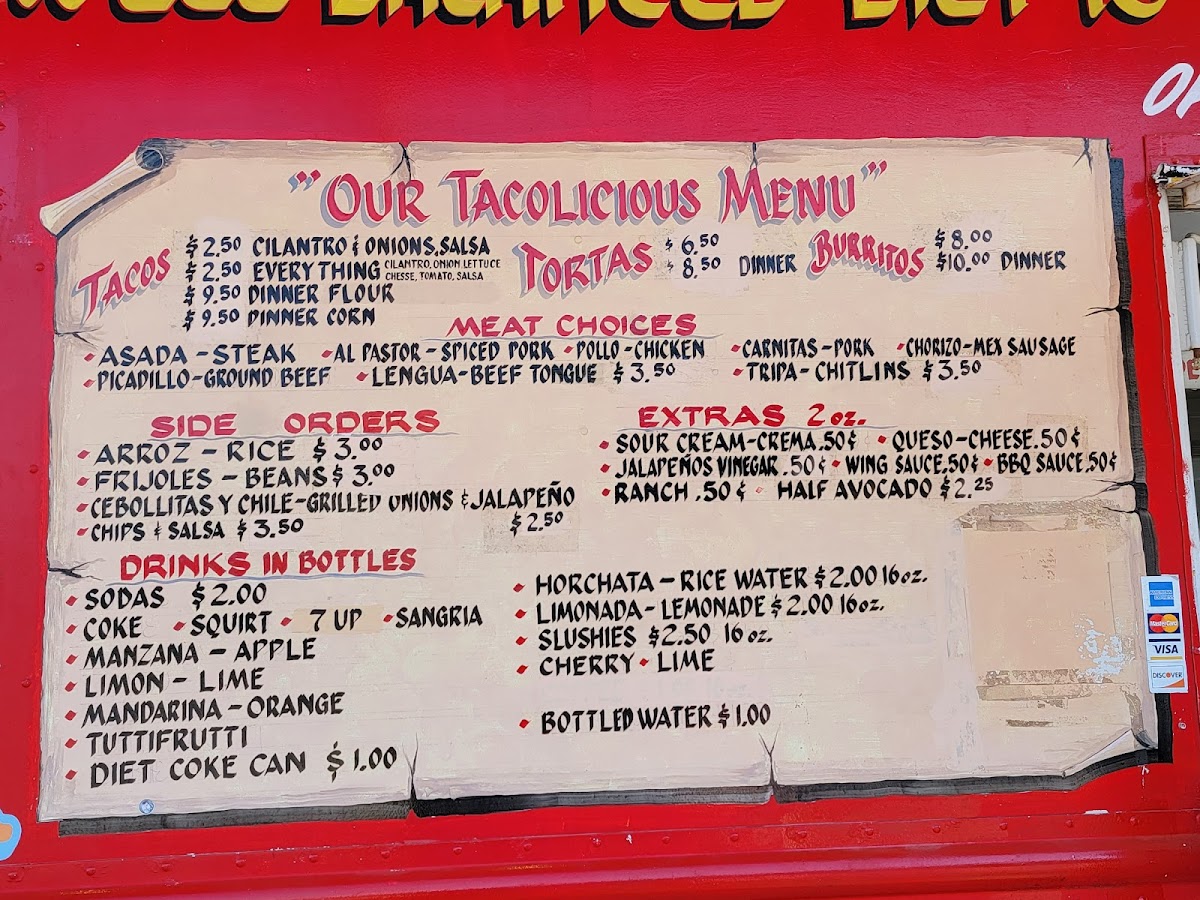 "OUR TACOLICIOUS MENU"
TACOS
$2.50 CILANTRO & ONIONS, SALSA
$2.50 EVERYTHING CILANTRO, ONION LETTUCE CHESSE, TOMATO, SALSA
$9.50 DINNER FLOUR
$9.50 DINNER CORN
TORTAS
$6.50
$8.50 DINNER
BURRITOS
$8.00
$10.00 DINNER
MEAT CHOICES
• ASADA - STEAK • AL PASTOR - SPICED PORK • POLLO - CHICKEN • CARNITAS - PORK • CHORIZO - MEX SAUSAGE
• PICADILLO - GROUND BEEF • LENGUA - BEEF TONGUE $3.50 • TRIPA - CHITLINS $3.50
SIDE ORDERS
• ARROZ - RICE $3.00
• FRIJOLES - BEANS $3.00
• CEBOLLITAS Y CHILE - GRILLED ONIONS & JALAPEÑO
$2.50
• CHIPS & SALSA $3.50
EXTRAS 2 oz.
• SOUR CREAM - CREMA .50¢ • QUESO - CHEESE .50¢
• JALAPEÑOS VINEGAR .50¢ • WING SAUCE .50¢ • BBQ SAUCE .50¢
• RANCH .50¢ • HALF AVOCADO $2.25
DRINKS IN BOTTLES
• SODAS $2.00
• COKE • SQUIRT • 7 UP • SANGRIA
• MANZANA - APPLE
• LIMON - LIME
• MANDARINA - ORANGE
• TUTTIFRUTTI
• DIET COKE CAN $1.00
• HORCHATA - RICE WATER $2.00 16 oz.
• LIMONADA - LEMONADE $2.00 16 oz.
• SLUSHIES $2.50 16 oz.
• CHERRY • LIME
• BOTTLED WATER $1.00
AMERICAN EXPRESS
MasterCard
VISA
DISCOVER